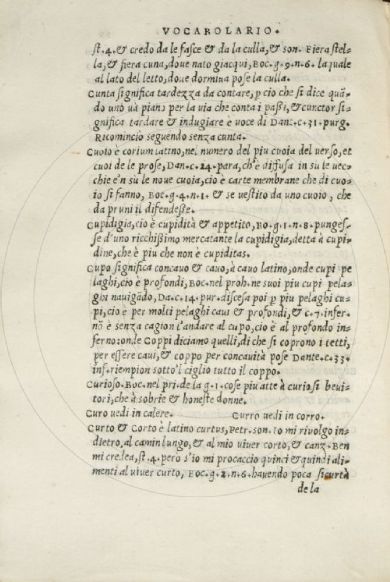 VOCABOLARIO.
st.4. & credo da le fasce & da la culla, & son. Fiera stel-
la, & fiera cuna, doue nato giacqui, Boc. g.9.n.6. la quale
al lato del letto, doue dormiua pose la culla.
Cunta significa tardezza da contare, p cio che si dice quã-
do uno uà piano per la via che conta i passi, & cunctor si-
gnifica tardare & indugiare è voce di Dan. c.31. purg.
Ricomincio seguendo senza cunta.
Cuoio è corium latino, nel numero del piu cuoia del verso, et
cuoi de le prose, Dan. c.24. para, ch'è diffusa in su le vec-
chie e'n su le noue cuoia, cio è carte membrane che di cuo-
io si fanno, Boc. g.4.n.1. & se uestito da uno cuoio, che
da pruni il difendesse.
Cupidigia, cio è cupidità & appetito, Bo. g.1.n.8. punges-
se d'uno ricchissimo mercatante la cupidigia, detta à cupi-
dine, che è piu che non è cupiditas.
Cupo significa concauo & cauo, à cauo latino, onde cupi pe
laghi, cio è profondi, Boc. nel proh. ne suoi piu cupi pela-
ghi nauigãdo, Da. c.14. pur. discesa poi p piu pelaghi cu-
pi, cio è per molti pelaghi caui & profondi, & c.7. infer.
nõ è senza cagion l'andare al cupo, cio è al profondo in-
ferno: onde Coppi diciamo quelli, di che si coprono i tetti,
per essere caui, & coppo per concauità pose Dante. c.33.
inf. riempion sotto'l ciglio tutto il coppo.
Curioso. Boc. nel pri. de la g.1. cose piu atte à curiosi beui-
tori, che à sobrie & honeste donne.
Curo uedi in calere. Curro uedi in corro.
Curto & Corto è latino curtus, Petr. son. Io mi riuolgo in-
dietro, al camin lungo, & al mio viuer corto, & canz. Ben
mi credea, st.4. pero s'io mi procaccio quinci & quindi ali-
menti al viuer curto, Boc. g.2.n.6. hauendo poca sicurtà
de la